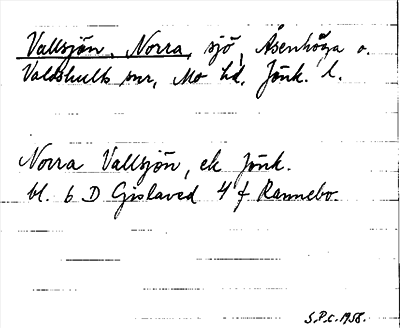 Vallsjön, Norra, sjö, Åsenhöga o.
Valdshults snr, Mo hd, Jönk. l.
Norra Vallsjön, ek Jönk.
bl. 6 D Gislaved 4 f Rannebo.
S.P.C. 1958.